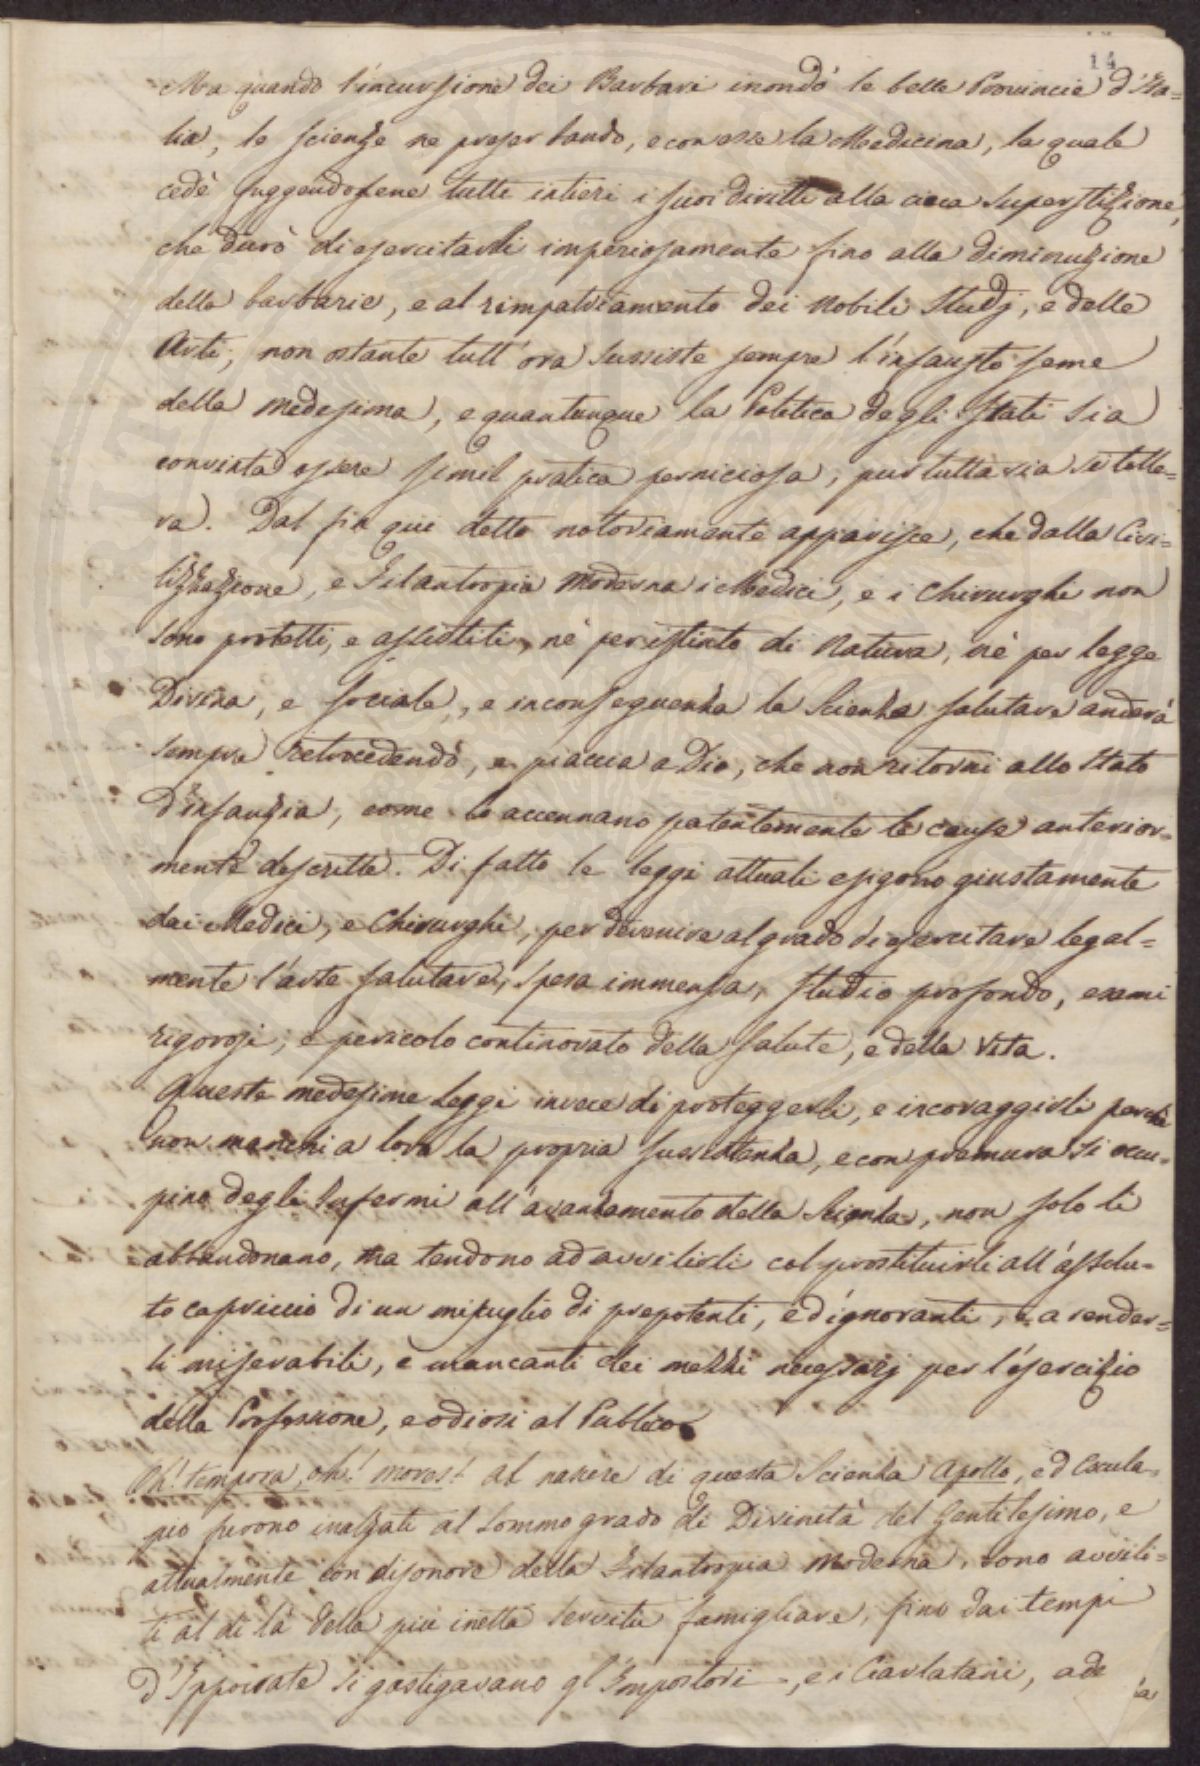 14
Ma quando l'incursione dei Barbari inondò le belle Provincie d'Ita=
lia, le scienze ne preser bando, e con esse la Medicina, la quale
cedè fuggendosene tutti intieri i suoi diritti alla cieca superstizione,
che durò di esercitarli imperiosamente fino alla diminuzione
della barbarie, e al rimpatriamento dei nobili studj, e delle
Arti, non ostante tutt'ora sussiste sempre l'infausto seme
della medesima, e quantunque la Politica degli Stati sia
convinta essere simil pratica perniciosa, pur tuttavia si tolle=
ra. Dal fin qui detto notoriamente apparisce, che dalla Civi=
lizzazione, e Filantropia moderna i Medici, e i Chirurghi non
sono protetti, e assistiti, nè per istinto di Natura, nè per legge
Divina, e sociale, e inconseguenza la Scienza salutare anderà
sempre retrocedendo, e piaccia a Dio, che non ritorni allo stato
d'infanzia, come lo accennano patentemente le cause anterior=
mente descritte. Di fatto le leggi attuali esigono giustamente
dai Medici, e Chirurghi, per devenire al grado d'esercitare legal=
mente l'arte salutare, spesa immensa, studio profondo, esami
rigorosi, e pericolo continovato della salute, e della vita.
Queste medesime Leggi invece di proteggerli, e incoraggirli perchè
non manchi a loro la propria sussistenza, e con premura si occu=
pino degli Infermi all'avanzamento della Scienza, non solo li
abbandonano, ma tendono ad avvilirli col prostituirli all'assolu=
to capriccio di un miscuglio di prepotenti, ed ignoranti, e a render=
li miserabili, e mancanti dei mezzi necessarj per l'esercizio
della Professione, e odiosi al Publico.
Oh! tempora, oh! mores! al nascere di questa Scienza Apollo, ed Escula=
pio furono inalzati al sommo grado di Divinità del Gentilesimo, e
attualmente con disonore della Filantropia moderna, sono avvili=
ti al di là della più inetta servitù famigliare, fino dai tempi
d'Ippocrate si gastigavano gl'Impostori, e i Ciarlatani, ad